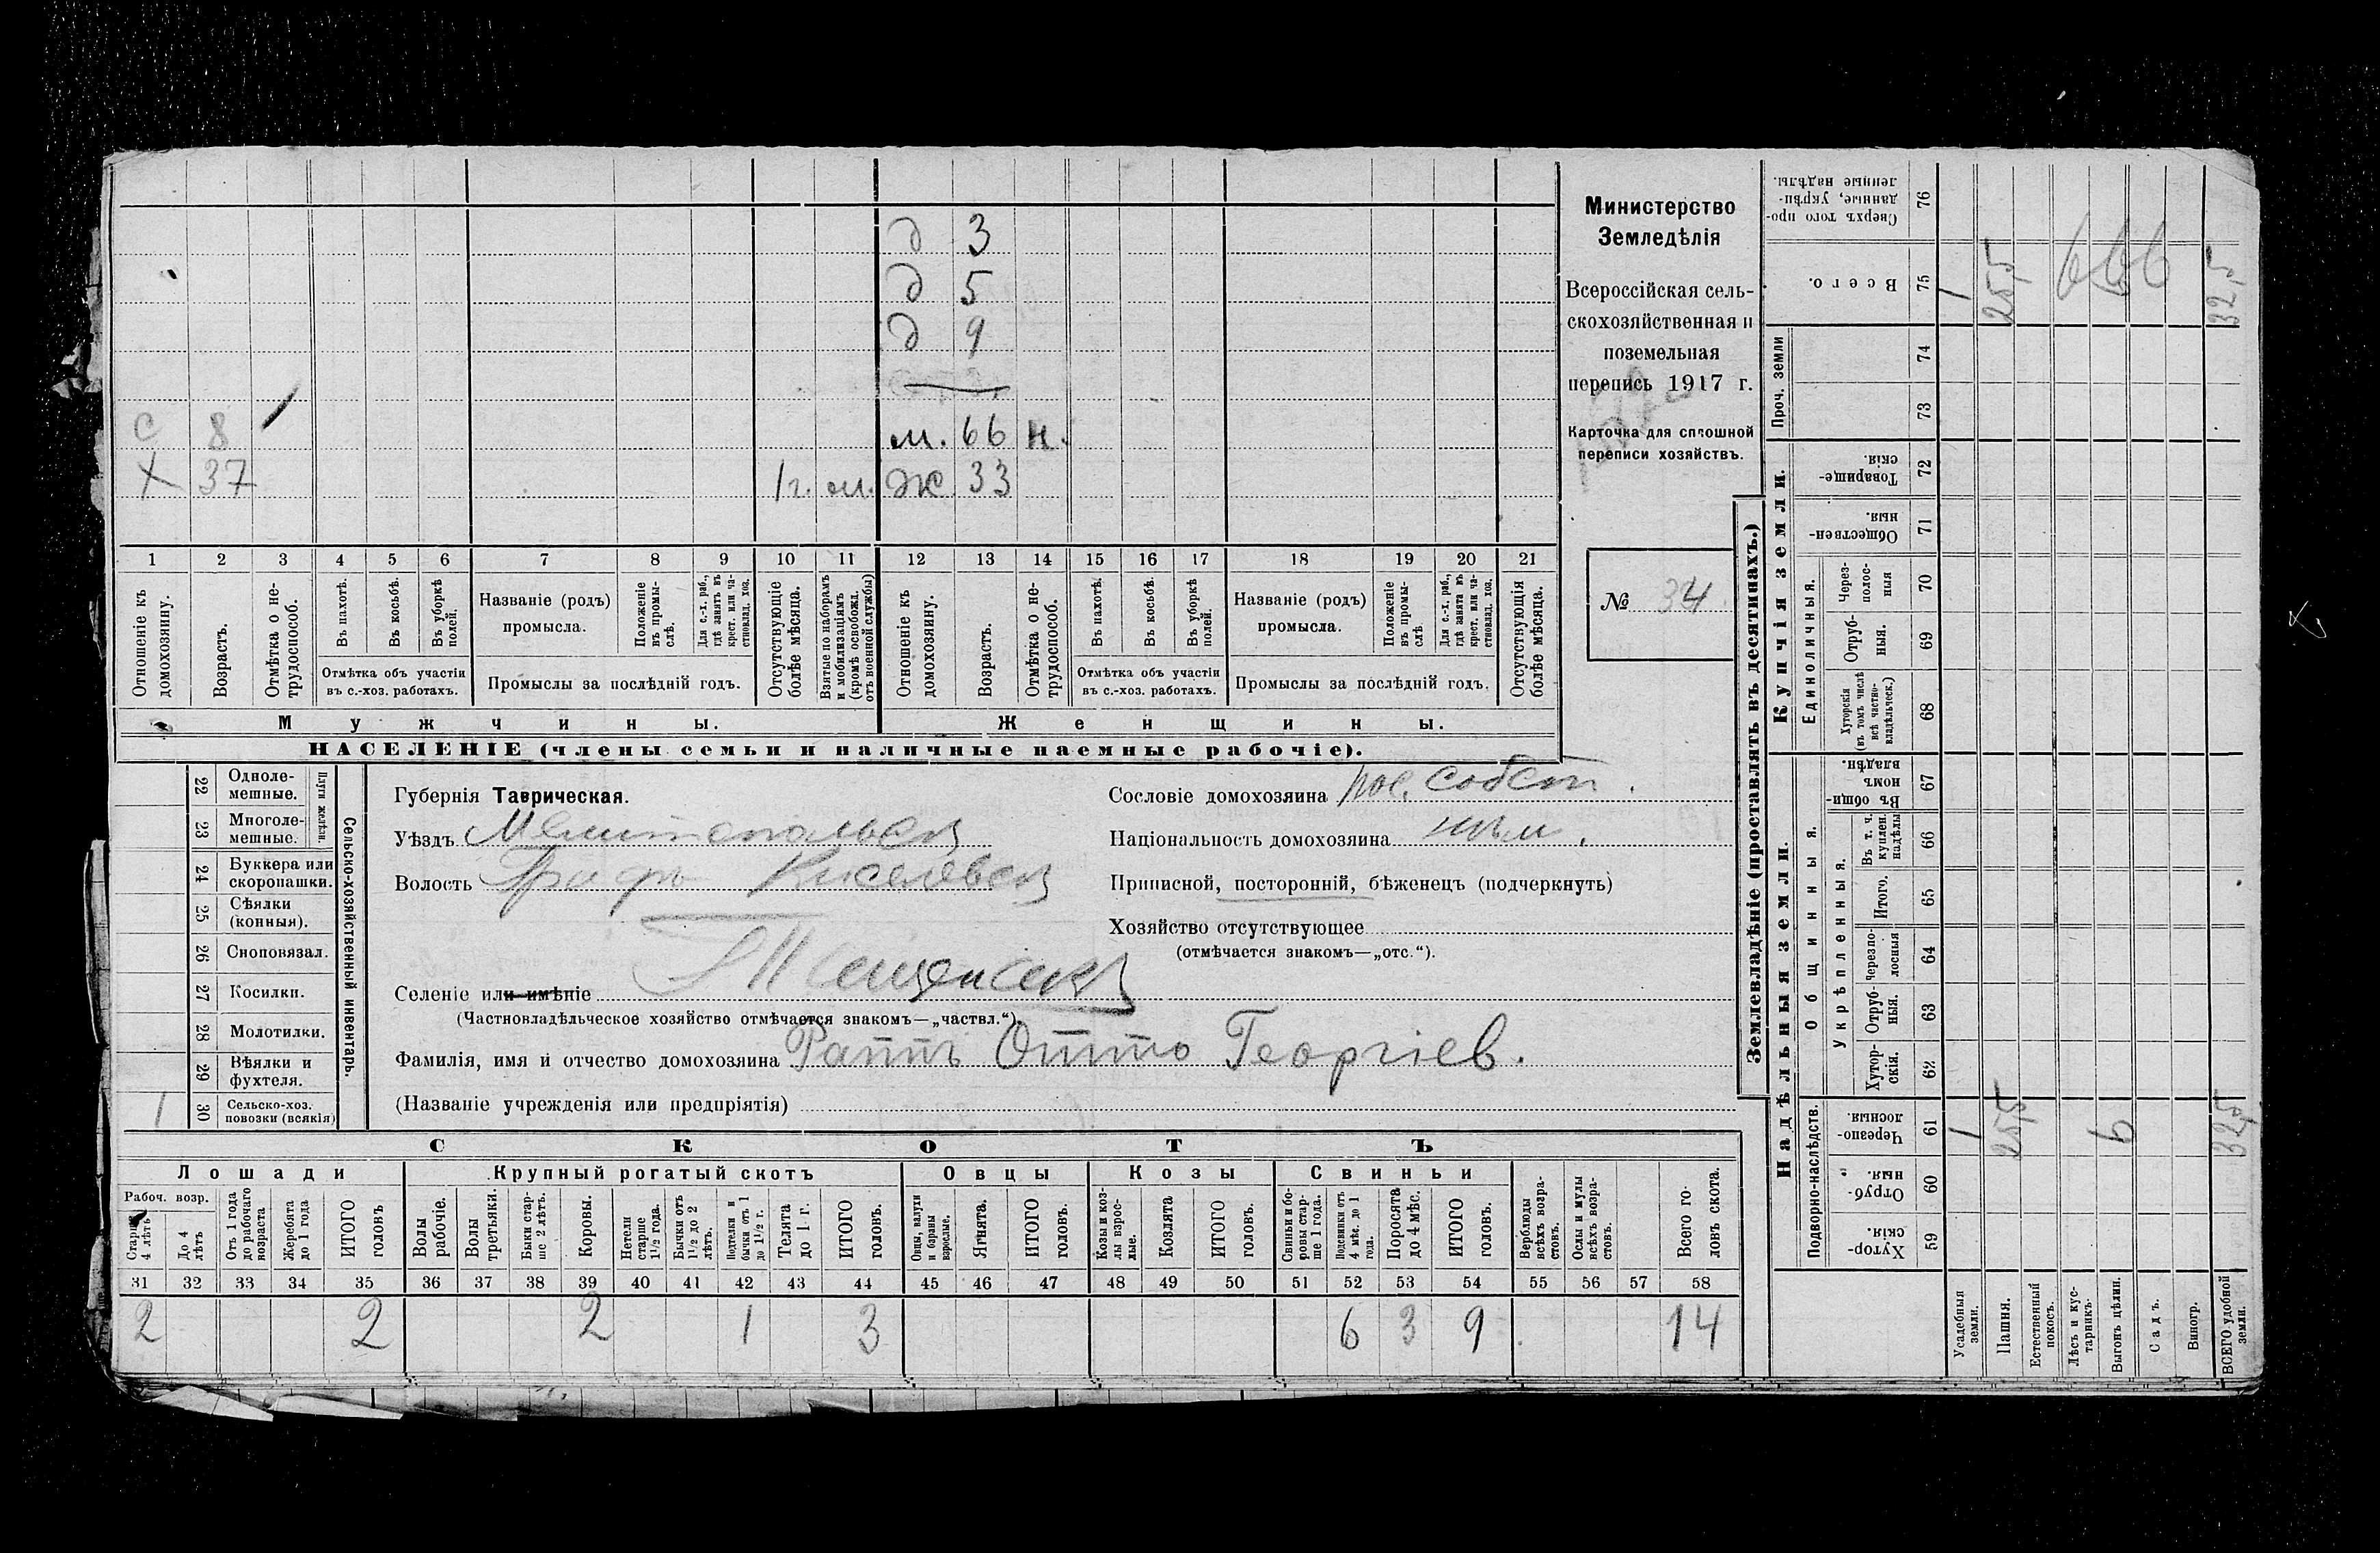 д 3
д 5
д 9
с 8
м. 66 н.
х 37 1 г. м. ж 33
1 2 3 4 5 6 7 8 9 10 11 12 13 14 15 16 17 18 19 20 21
Отношеніе къ домохозяину.
Возрастъ.
Отмѣтка о не-трудоспособ.
Въ пахотѣ.
Въ косьбѣ.
Въ уборкѣ полей.
Отмѣтка объ участіи
въ с.-хоз. работахъ.
Названіе (родъ)
промысла.
Положеніе въ промы-слѣ.
Для с.-х. раб., гдѣ занятъ въ крест. или ча-стновлад. хоз.
Промыслы за послѣдній годъ.
Отсутствующіе болѣе мѣсяца.
Взятые по наборамъ и мобилизаціямъ (кромѣ освобожд. отъ военной службы)
Отношеніе къ домохозяину.
Возрастъ.
Отмѣтка о не-трудоспособ.
Въ пахотѣ.
Въ косьбѣ.
Въ уборкѣ полей.
Отмѣтка объ участіи
въ с.-хоз. работахъ.
Названіе (родъ)
промысла.
Положеніе въ промы-слѣ
Для с.-х. раб., гдѣ занята въ крест. или ча-стновлад. хоз.
Промыслы за послѣдній годъ.
Отсутствующія болѣе мѣсяца.
Мужчины.
Женщины.
НАСЕЛЕНІЕ (члены семьи и наличные наемные рабочіе).
Министерство
Земледѣлія
Всероссійская сель-
скохозяйственная и
поземельная
перепись 1917 г.
Карточка для сплошной
переписи хозяйствъ.
№ 34
22 Одноле-мешные.
23 Многоле-мешные.
Плуги желѣзн.
24 Буккера или скоропашки.
25 Сѣялки (конныя).
26 Сноповязал.
27 Косилки.
28 Молотилки.
29 Вѣялки и фухтеля.
1 30 Сельско-хоз. повозки (всякія)
Сельско-хозяйственный инвентарь.
Губернія Таврическая.
Уѣздъ Мелитопольск
Волость Киселевск
Селеніе или имѣніе
(Частновладѣльческое хозяйство отмѣчается знакомъ—„частвл.“).
Фамилія, имя и отчество домохозяина Раппъ Отто Георгіев.
(Названіе учрежденія или предпріятія)
Сословіе домохозяина пос. собст.
Національность домохозяина нѣм.
Приписной, посторонній, бѣженецъ (подчеркнуть)
Хозяйство отсутствующее
(отмѣчается знакомъ—„отс.“).
СКОТЪ
Лошади
Крупный рогатый скотъ
Овцы
Козы
Свиньи
Рабоч. возр.
Старше 4 лѣтъ
До 4 лѣтъ
Отъ 1 года до рабочаго возраста
Жеребята до 1 года
ИТОГО головъ
Волы рабочіе.
Волы третьяки.
Быки стар-ше 2 лѣтъ.
Коровы.
Нетели старше 1½ года.
Бычки отъ 1½ до 2 лѣтъ.
Подтелки и бычки отъ 1 до 1½ г.
Телята до 1 г.
ИТОГО головъ.
Овцы, валухи и бараны взрослые.
Ягнята.
ИТОГО головъ.
Козы и коз-лы взрос-лые.
Козлята
ИТОГО головъ.
Свиньи и бо-ровы стар-ше 1 года.
Подсвинки отъ 4 мѣс. до 1 года.
Поросята до 4 мѣс.
ИТОГО головъ.
Верблюды всѣхъ возра-стовъ.
Ослы и мулы всѣхъ возра-стовъ.
Всего го-ловъ скота.
31 32 33 34 35 36 37 38 39 40 41 42 43 44 45 46 47 48 49 50 51 52 53 54 55 56 57 58
2 2 2 1 3 6 3 9 14
Землевладѣніе (проставлять въ десятинахъ.)
Надѣльныя земли.
Купчія земли.
Проч. земли
Подворно-наслѣдств.
Общинныя.
Укрѣпленныя.
Единоличныя.
Сверхъ того про-данные, укрѣп-ленные надѣлы. 76
Всего. 75 1 25,5 6 32,5
74
73
Товарище-скія. 72
Обществен-ныя. 71
Через-полос-ныя 70
Отруб-ныя. 69
Хуторскія (въ томъ числѣ всѣ частно-владѣльческ.) 68
Въ общин-номъ владѣн. 67
Въ т. ч. куплен. надѣлы 66
Итого. 65
Черезпо-лосныя 64
Отруб-ныя. 63
Хутор-скія. 62
Черезпо-лосныя. 61 1 25,5 6 32,5
Отруб-ныя. 60
Хутор-скія. 59
Усадебныя земли.
Пашня.
Естественный покосъ.
Лѣсъ и кус-тарникъ.
Выгонъ цѣлин.
Садъ.
Виногр.
ВСЕГО удобной земли.